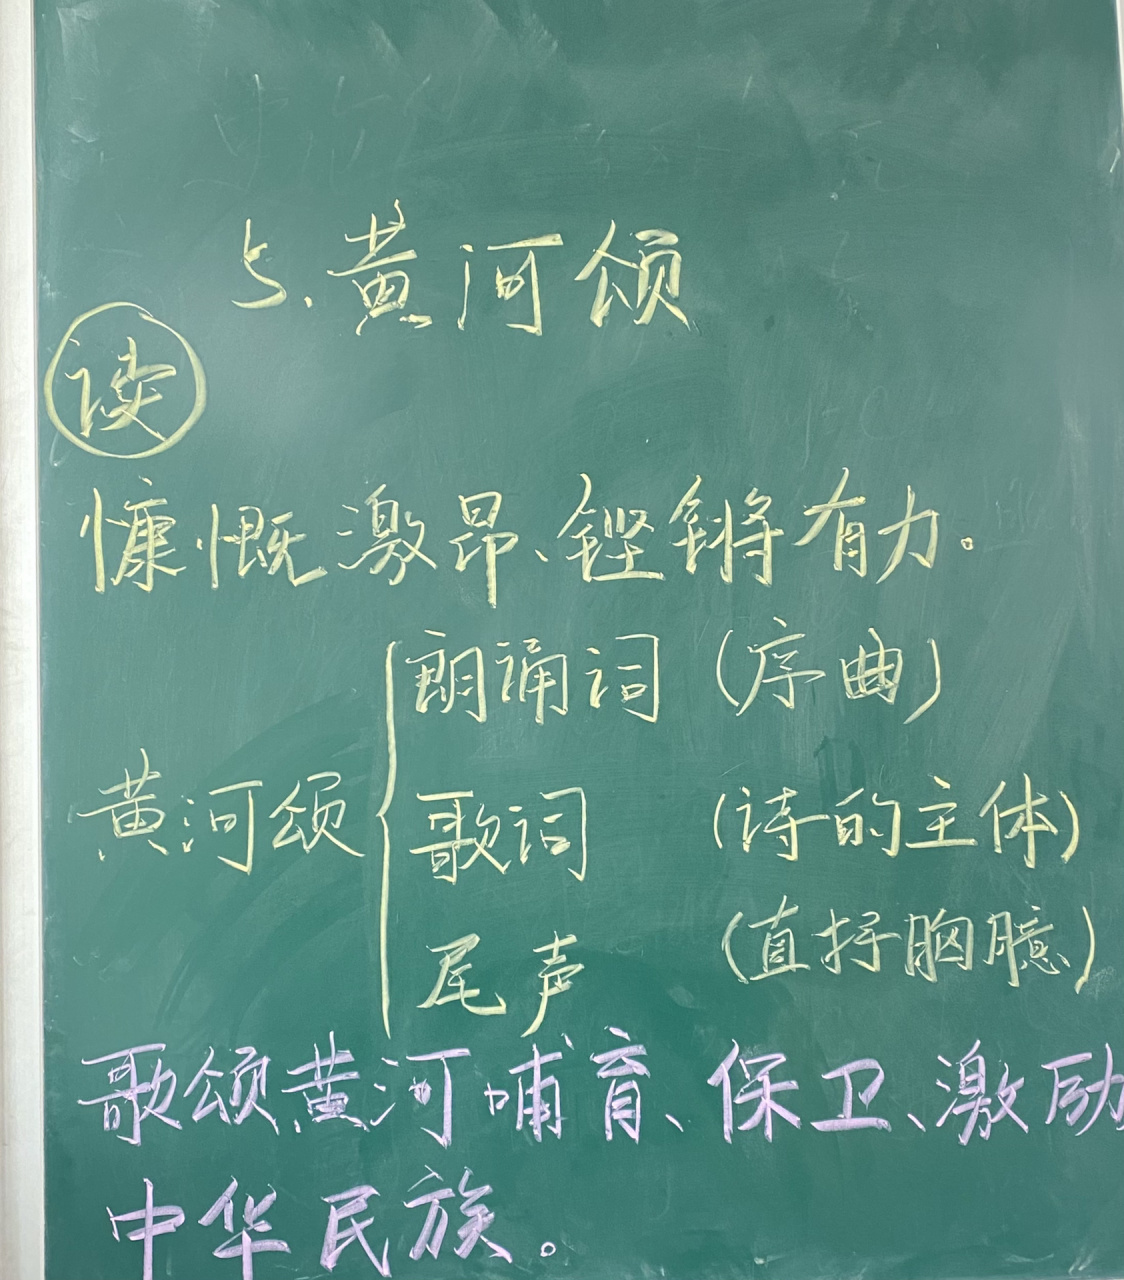 5.黄河颂
读
慷慨激昂、铿锵有力。
朗诵词（序曲）
黄河颂 歌词（诗的主体）
尾声（直抒胸臆）
歌颂黄河哺育、保卫、激励
中华民族。